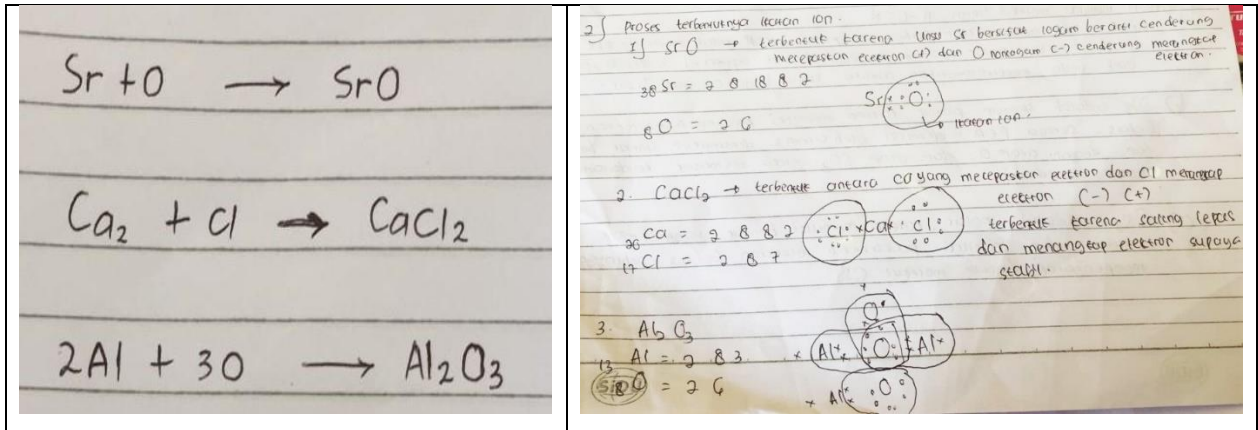 Sr + O → SrO
Ca₂ + Cl → CaCl₂
2Al + 3O → Al₂O₃
2) Proses terbentuknya Ikatan Ion.
1) SrO → terbentuk karena Unsur Sr bersifat logam berarti cenderung
melepaskan elektron (+) dan O nonlogam (-) cenderung menangkap
elektron.
₃₈Sr = 2 8 18 8 2
Sr O
₈O = 2 6
Ikatan ion.
2. CaCl₂ → terbentuk antara Ca yang melepaskan elektron dan Cl menangkap
elektron (-) (+)
₂₀Ca = 2 8 8 2 Cl Ca Cl terbentuk karena saling lepas
₁₇Cl = 2 8 7 dan menangkap elektron supaya
stabil.
O
3. Al₂O₃
₁₃Al = 2 8 3 Al O Al
₈O = 2 6
Al O